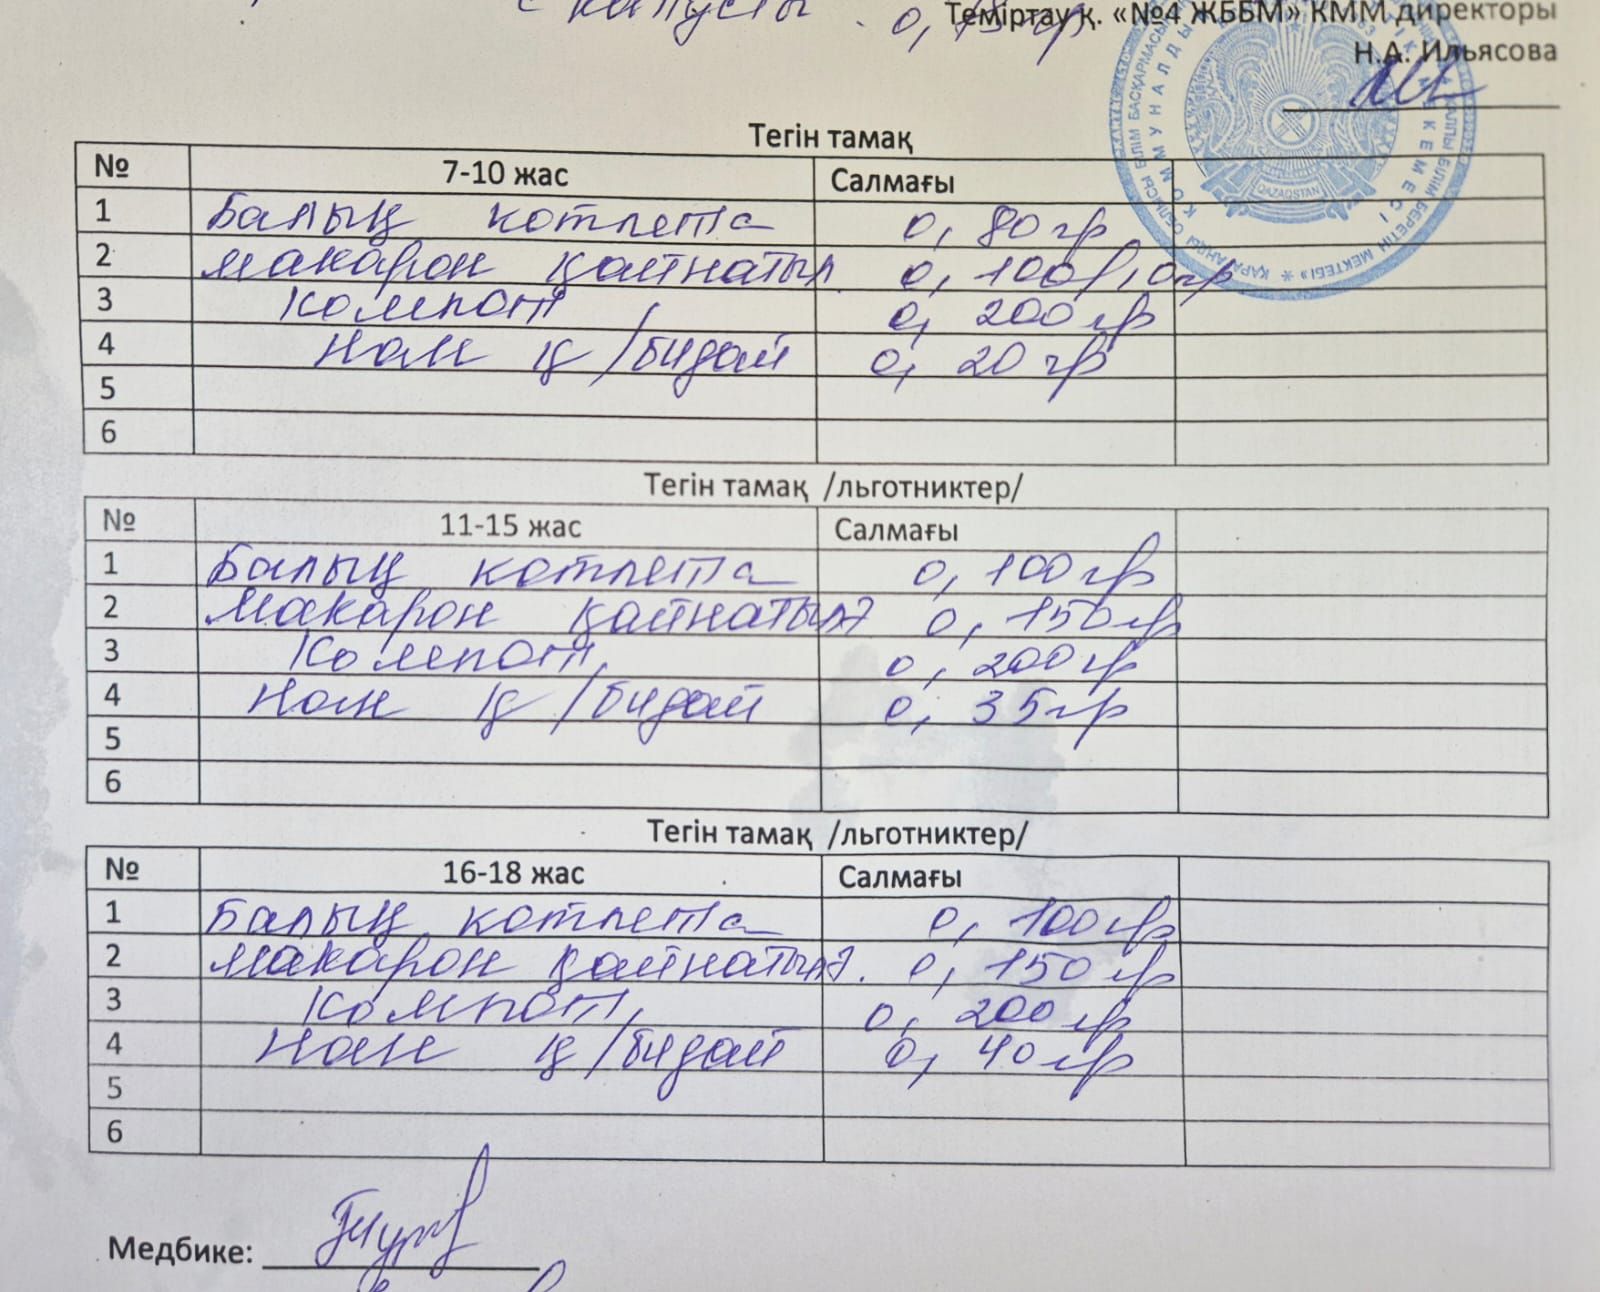 с капусты 0,
Теміртау қ. «№4 ЖББМ» КММ директоры
Н.А. Ильясова
QAZAQSTAN
Тегін тамақ
№ 7-10 жас Салмағы
1 Балық котлета 0, 80 гр
2 макарон қайнатыл. 0, 100/10гр
3 Компот 0, 200 гр
4 Нан қ/бидай 0, 20 гр
5
6
Тегін тамақ /льготниктер/
№ 11-15 жас Салмағы
1 Балық котлета 0, 100 гр
2 Макарон қайнатылғ 0, 150 гр
3 Компот 0, 200 гр
4 Нан қ/бидай 0, 35 гр
5
6
Тегін тамақ /льготниктер/
№ 16-18 жас Салмағы
1 Балық котлета 0, 100 гр
2 макарон қайнатылғ. 0, 150 гр
3 Компот 0, 200 гр
4 Нан қ/бидай 0, 40 гр
5
6
Медбике: